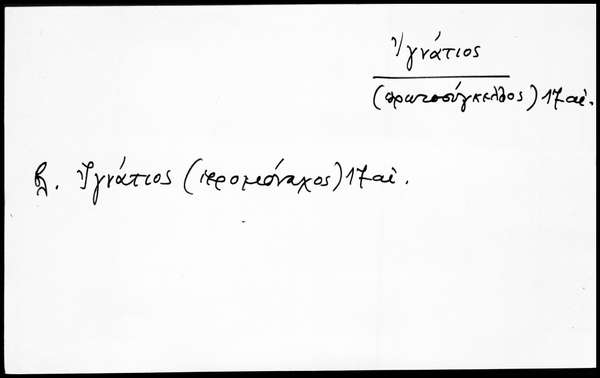 Ἰγνάτιος
(πρωτοσύγκελλος) 17 αἰ.
βλ. Ἰγνάτιος (ἱερομόναχος) 17 αἰ.